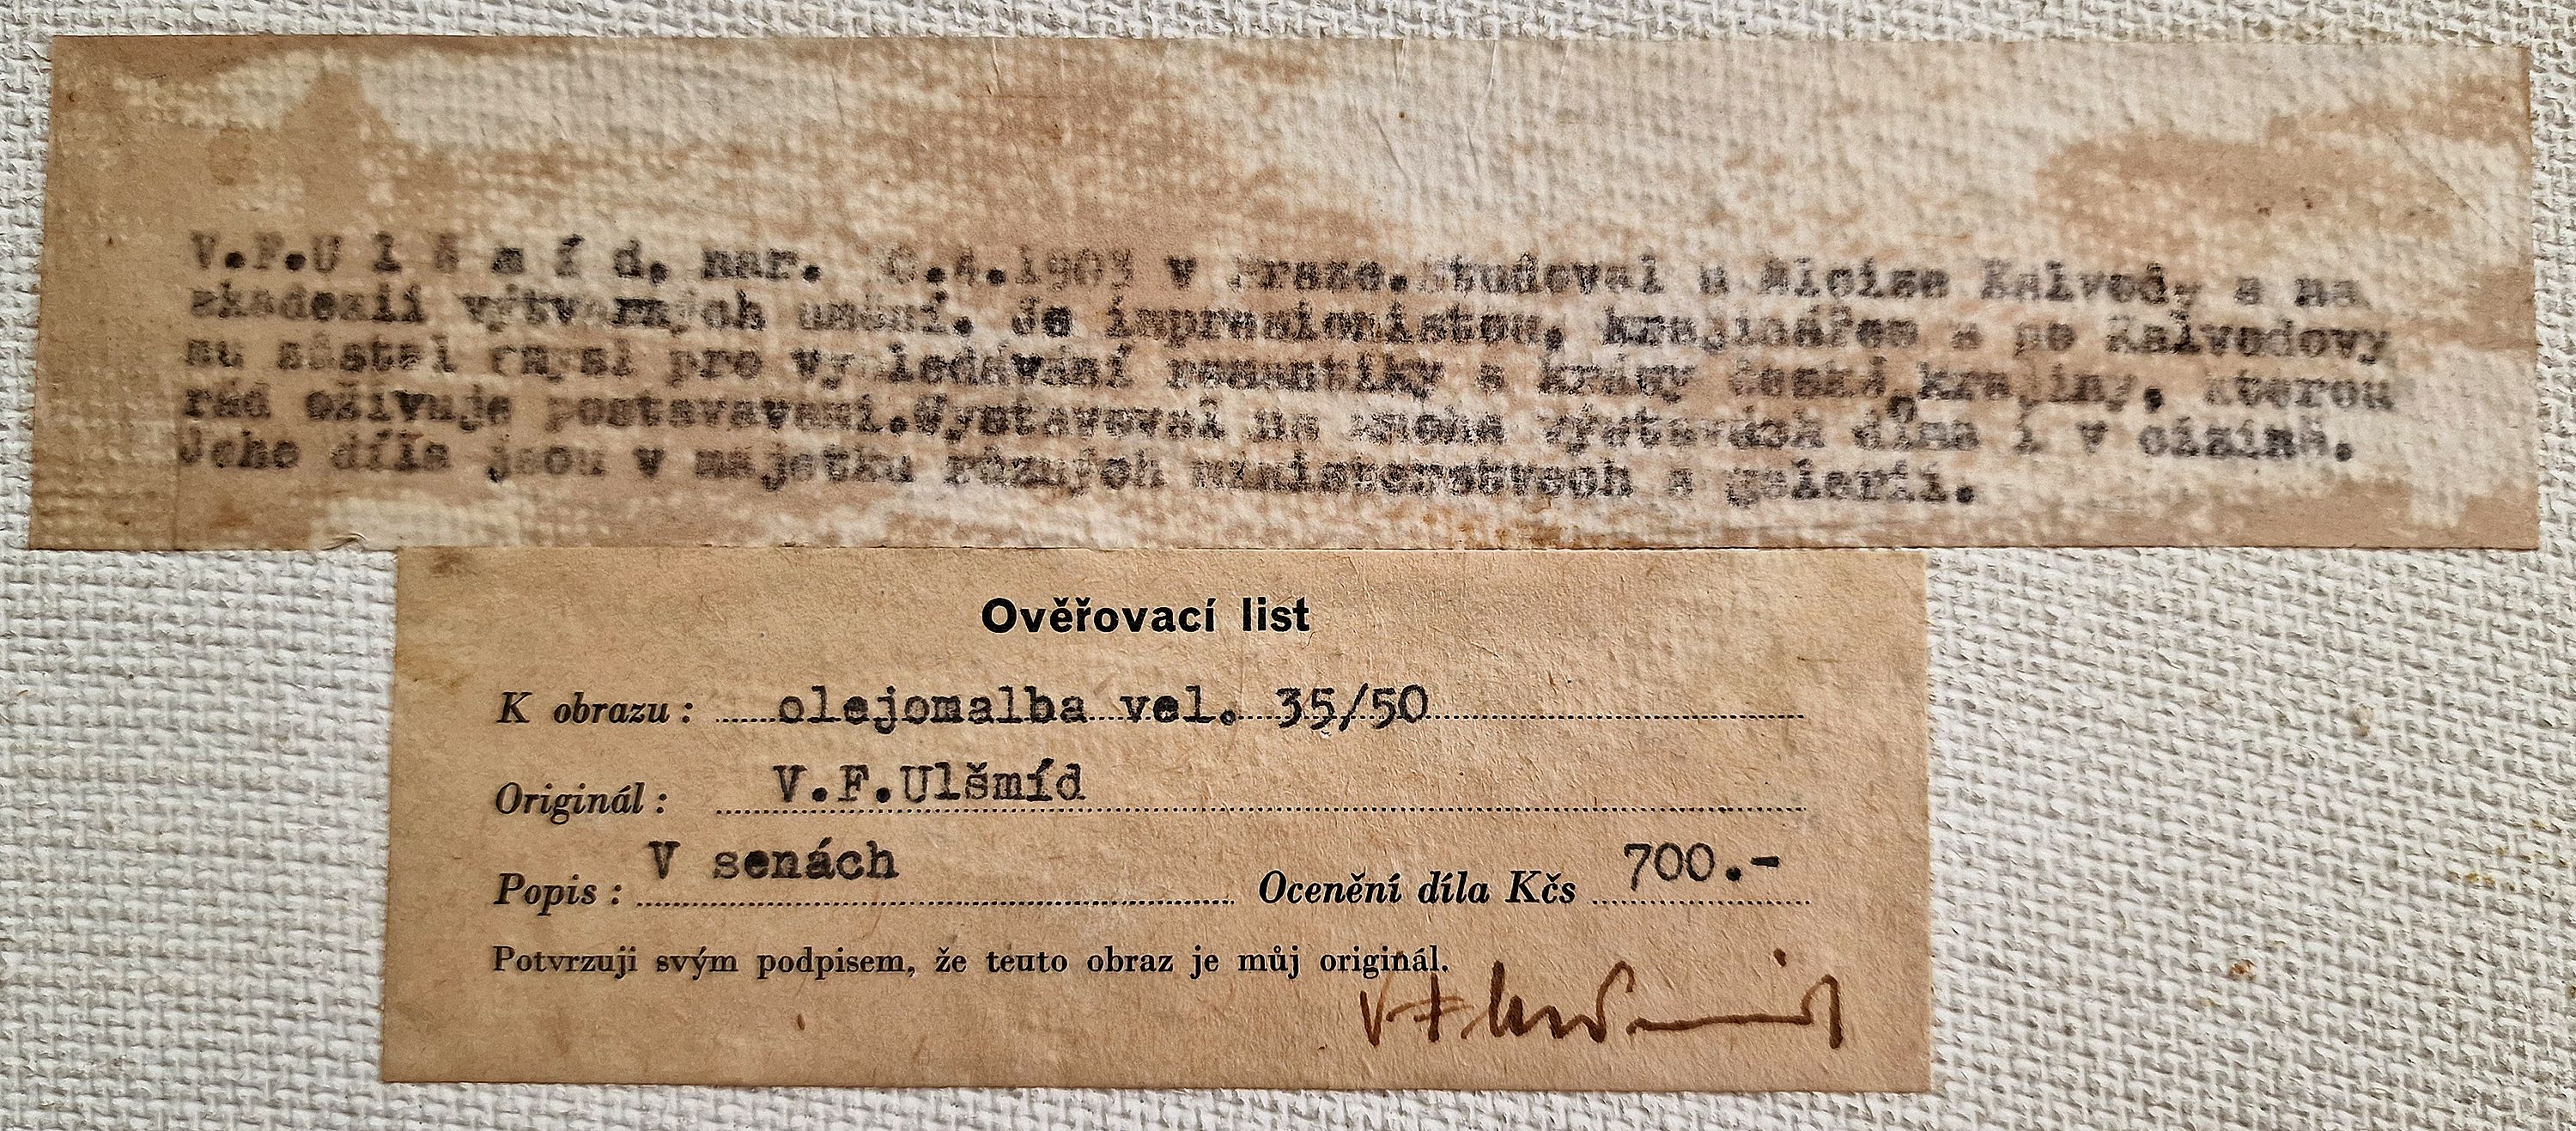 V.F.U l š m í d, nar. 0.4.1903 v Praze.Studoval u Aloise Kalvody a na
akademii výtvarných umění. Je impresionistou, krajinářem a po Kalvodovy
mu zůstal smysl pro vyhledávání romantiky a krásy české krajiny, kterou
rád oživuje postavavami.Vystavoval na mnoha výstavách doma i v cizině.
Jeho díla jsou v majetku různých ministerstvech a galerií.
Ověřovací list
K obrazu: olejomalba vel. 35/50
Originál: V.F.Ulšmíd
Popis: V senách Ocenění díla Kčs 700.-
Potvrzuji svým podpisem, že tento obraz je můj originál.